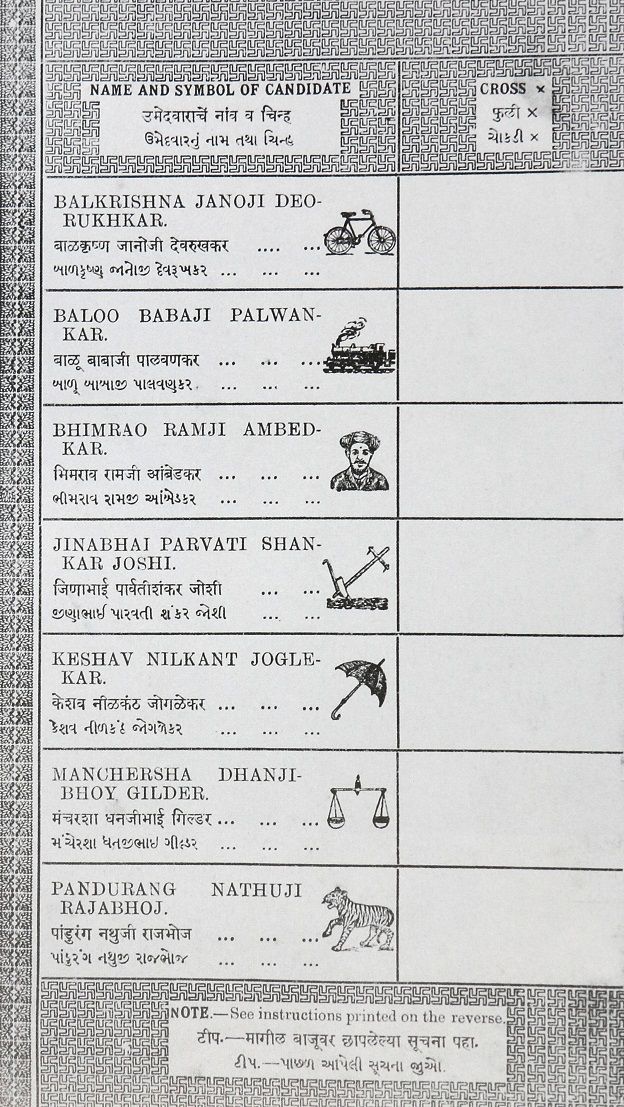 NAME AND SYMBOL OF CANDIDATE
उमेदवाराचें नांव व चिन्ह
ઉમેદવારનું નામ તથા ચિન્હ
CROSS ×
फुली ×
ચોકડી ×
BALKRISHNA JANOJI DEO-
RUKHKAR.
बाळकृष्ण जानोजी देवरुखकर .... ...
બાળકૃષ્ણ જાનોજી દેવરૂખકર ... ... ...
BALOO BABAJI PALWAN-
KAR.
बाळू बाबाजी पाळवणकर ... ... ...
બાળૂ બાબાજી પાલવણકર . ... ... ...
BHIMRAO RAMJI AMBED-
KAR.
भिमराव रामजी आंबेडकर ... ... ...
ભીમરાવ રામજી આંબેડકર ... ... ...
JINABHAI PARVATI SHAN-
KAR JOSHI.
जिणाभाई पार्वतीशंकर जोशी ... ...
જીણાભાઈ પારવતી શંકર જોશી ... ...
KESHAV NILKANT JOGLE-
KAR.
केशव नीळकंठ जोगळेकर ... ... ...
કેશવ નીળકંઠ જોગળેકર ... ... ...
MANCHERSHA DHANJI-
BHOY GILDER.
मंचरशा धनजीभाई गिल्डर ... ... ...
મંચેરશા ધનજીભાઇ ગીલ્ડર ... ... ...
PANDURANG NATHUJI
RAJABHOJ.
पांडुरंग नथुजी राजभोज ... ... ...
પાંડુરંગ નથુજી રાજભોજ ... ... ...
NOTE.—See instructions printed on the reverse.
टीप.—मागील बाजूवर छापलेल्या सूचना पहा.
ટીપ.—પાછળ આપેલી સુચના જીઓ.